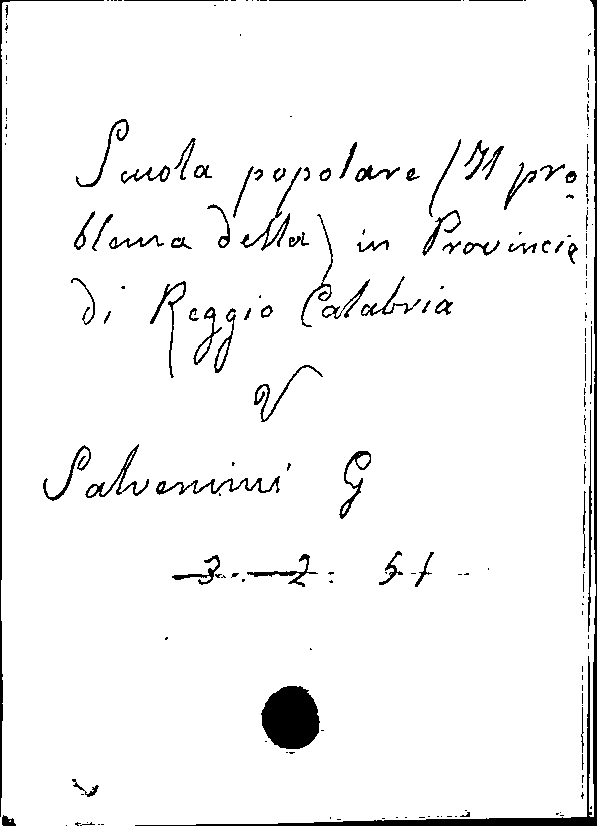 Scuola popolare (Il pro-
blema della) in Provincia
di Reggio Calabria
V
Salvemini G
3. 2. 51